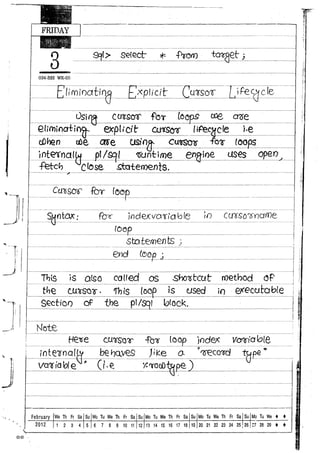 FRIDAY
3
034-332 WK-05
sql> select * from target;
Eliminating Explicit Cursor Lifecycle
Using cursor for loops we are
eliminating explicit cursor lifecycle i.e
when we are using cursor for loops
internally pl/sql runtime engine uses open,
fetch, close statements.
Cursor for loop
Syntax: for indexvariable in cursorname
loop
statements;
end loop;
This is also called as shortcut method of
the cursor. This loop is used in executable
section of the pl/sql block.
Note
Here cursor for loop index variable
internally behaves like a "record type"
variable" (i.e %rowtype)
February We Th Fr Sa Su Mo Tu We Th Fr Sa Su Mo Tu We Th Fr Sa Su Mo Tu We Th Fr Sa Su Mo Tu We
2012 1 2 3 4 5 6 7 8 9 10 11 12 13 14 15 16 17 18 19 20 21 22 23 24 25 26 27 28 29